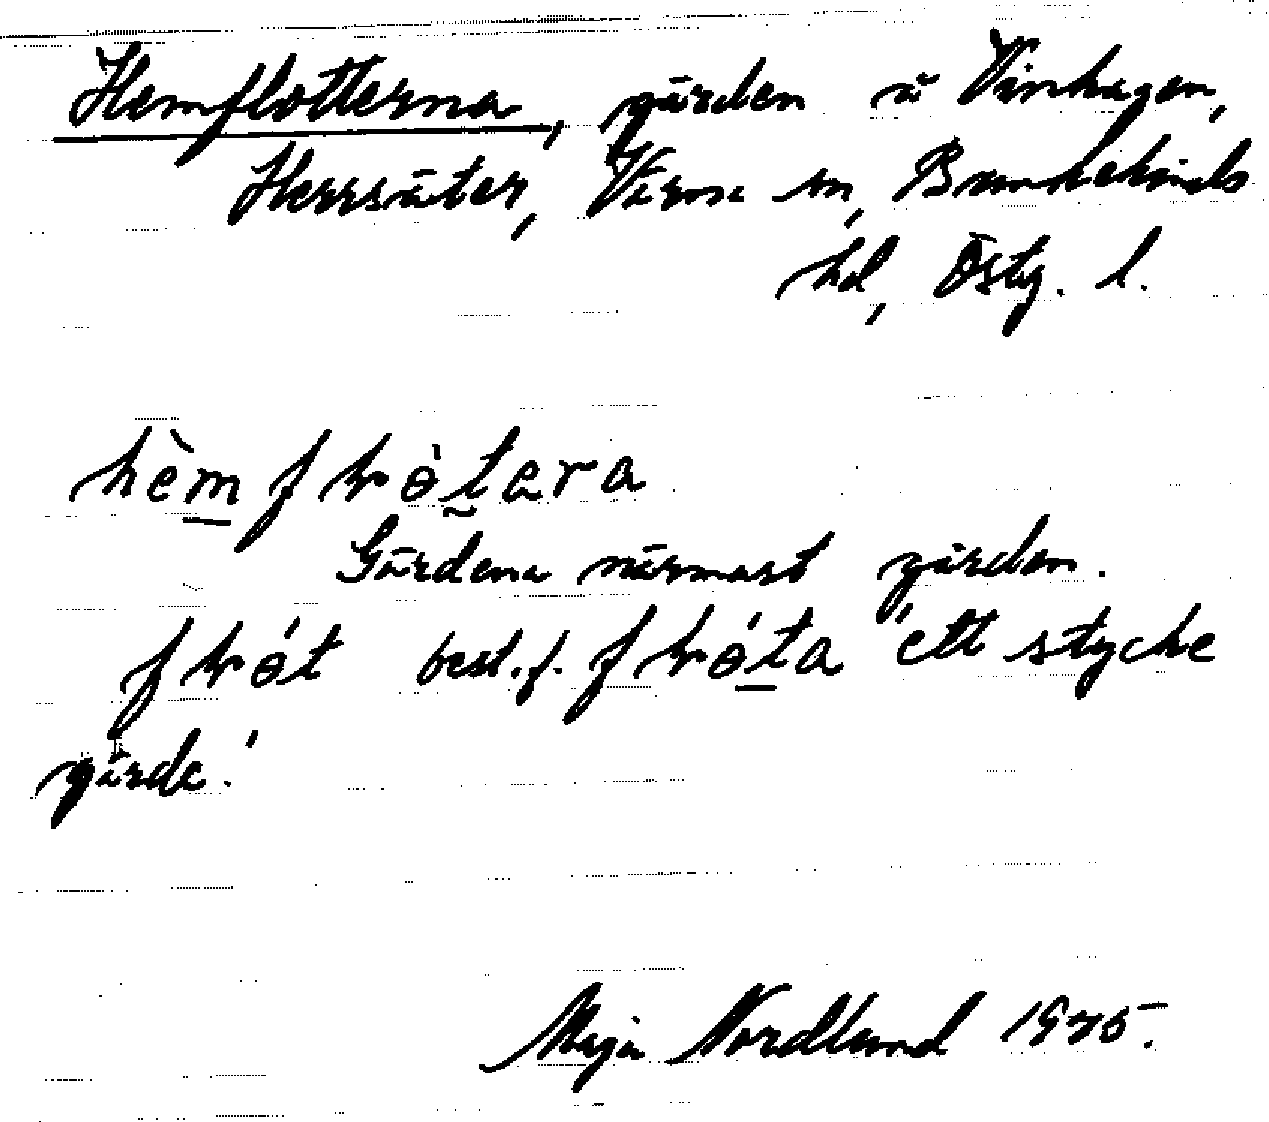 Hemflotterna, gärden å Vinhagen,
Herrsäter, Värna sn, Bankekinds
hd, Östg. l.
hèmflòtera
Gärdena närmast gården.
flót best. f. flóta 'ett stycke
gärde.'
Maja Nordlund 1935.